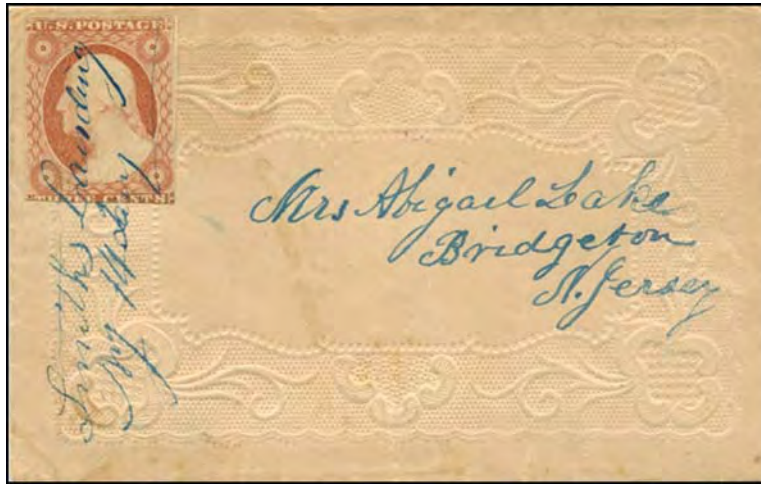 U.S. POSTAGE
THREE CENTS
Smiths Landing
Mrs Abigail Lake
Bridgeton
N. Jersey